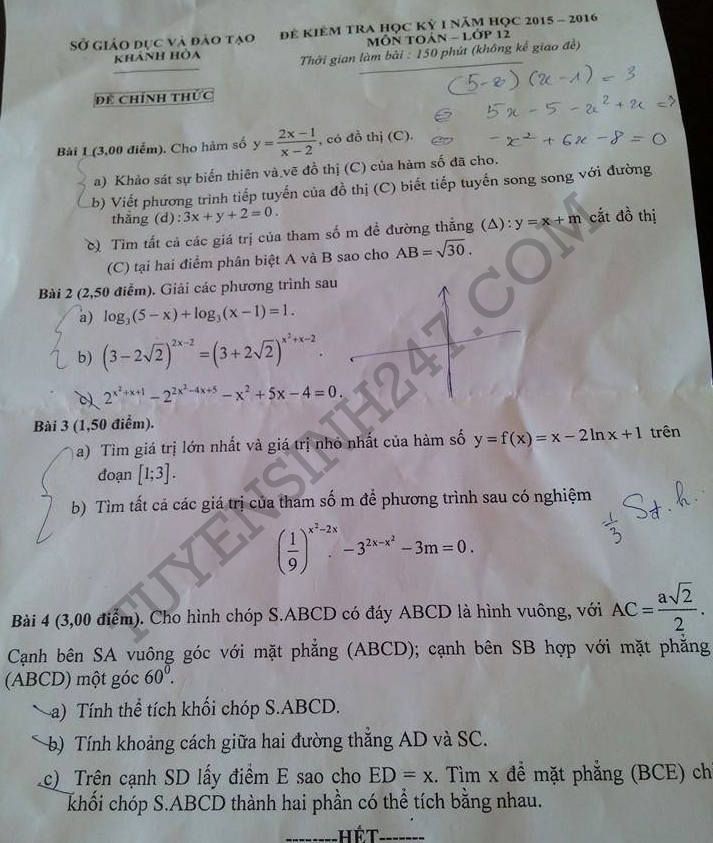 SỞ GIÁO DỤC VÀ ĐÀO TẠO
KHÁNH HÒA
ĐỀ CHÍNH THỨC
ĐỀ KIỂM TRA HỌC KỲ I NĂM HỌC 2015 – 2016
MÔN TOÁN – LỚP 12
Thời gian làm bài : 150 phút (không kể giao đề)
(5-x) (x-1) = 3
⇔ 5x - 5 - x² + x = 3
⇔ -x² + 6x - 8 = 0
Bài 1 (3,00 điểm). Cho hàm số y = (2x − 1)/(x − 2), có đồ thị (C).
a) Khảo sát sự biến thiên và vẽ đồ thị (C) của hàm số đã cho.
b) Viết phương trình tiếp tuyến của đồ thị (C) biết tiếp tuyến song song với đường
thẳng (d) : 3x + y + 2 = 0.
c) Tìm tất cả các giá trị của tham số m để đường thẳng (Δ) : y = x + m cắt đồ thị
(C) tại hai điểm phân biệt A và B sao cho AB = √30.
Bài 2 (2,50 điểm). Giải các phương trình sau
a) log₃(5 − x) + log₃(x − 1) = 1.
b) (3 − 2√2)^(2x−2) = (3 + 2√2)^(x²+x−2).
c) 2^(x²+x+1) − 2^(2x²−4x+5) − x² + 5x − 4 = 0.
Bài 3 (1,50 điểm).
a) Tìm giá trị lớn nhất và giá trị nhỏ nhất của hàm số y = f(x) = x − 2 ln x + 1 trên
đoạn [1;3].
b) Tìm tất cả các giá trị của tham số m để phương trình sau có nghiệm
1/3 Sđ.h
(1/9)^(x²−2x) − 3^(2x−x²) − 3m = 0.
Bài 4 (3,00 điểm). Cho hình chóp S.ABCD có đáy ABCD là hình vuông, với AC = a√2/2.
Cạnh bên SA vuông góc với mặt phẳng (ABCD); cạnh bên SB hợp với mặt phẳng
(ABCD) một góc 60⁰.
a) Tính thể tích khối chóp S.ABCD.
b) Tính khoảng cách giữa hai đường thẳng AD và SC.
c) Trên cạnh SD lấy điểm E sao cho ED = x. Tìm x để mặt phẳng (BCE) ch
khối chóp S.ABCD thành hai phần có thể tích bằng nhau.
--------HẾT-------
TUYENSINH247.COM